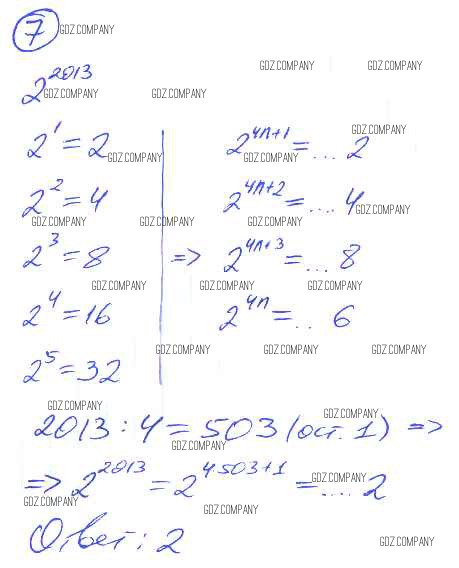 7 GDZ.COMPANY
GDZ.COMPANY GDZ.COMPANY
2^2013
GDZ.COMPANY GDZ.COMPANY
GDZ.COMPANY
2^1 = 2 2^4n+1 = ... 2
GDZ.COMPANY GDZ.COMPANY
2^2 = 4 2^4n+2 = .... 4 GDZ.COMPANY
GDZ.COMPANY GDZ.COMPANY GDZ.COMPANY
2^3 = 8 => 2^4n+3 = ... 8
GDZ.COMPANY GDZ.COMPANY GDZ.COMPANY
2^4 = 16 2^4n = ... 6
GDZ.COMPANY GDZ.COMPANY GDZ.COMPANY
2^5 = 32
GDZ.COMPANY GDZ.COMPANY
2013 : 4 = 503 (ост. 1) =>
GDZ.COMPANY
=> 2^2013 = 2^4·503+1 = .... 2
GDZ.COMPANY GDZ.COMPANY
GDZ.COMPANY
Ответ: 2
GDZ.COMPANY